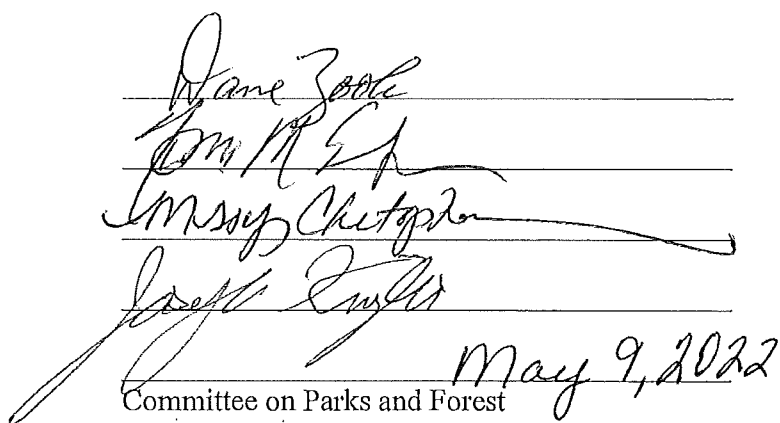 Dane Zook
Tom M
Missy Christopher
Joseph
May 9, 2022
Committee on Parks and Forest